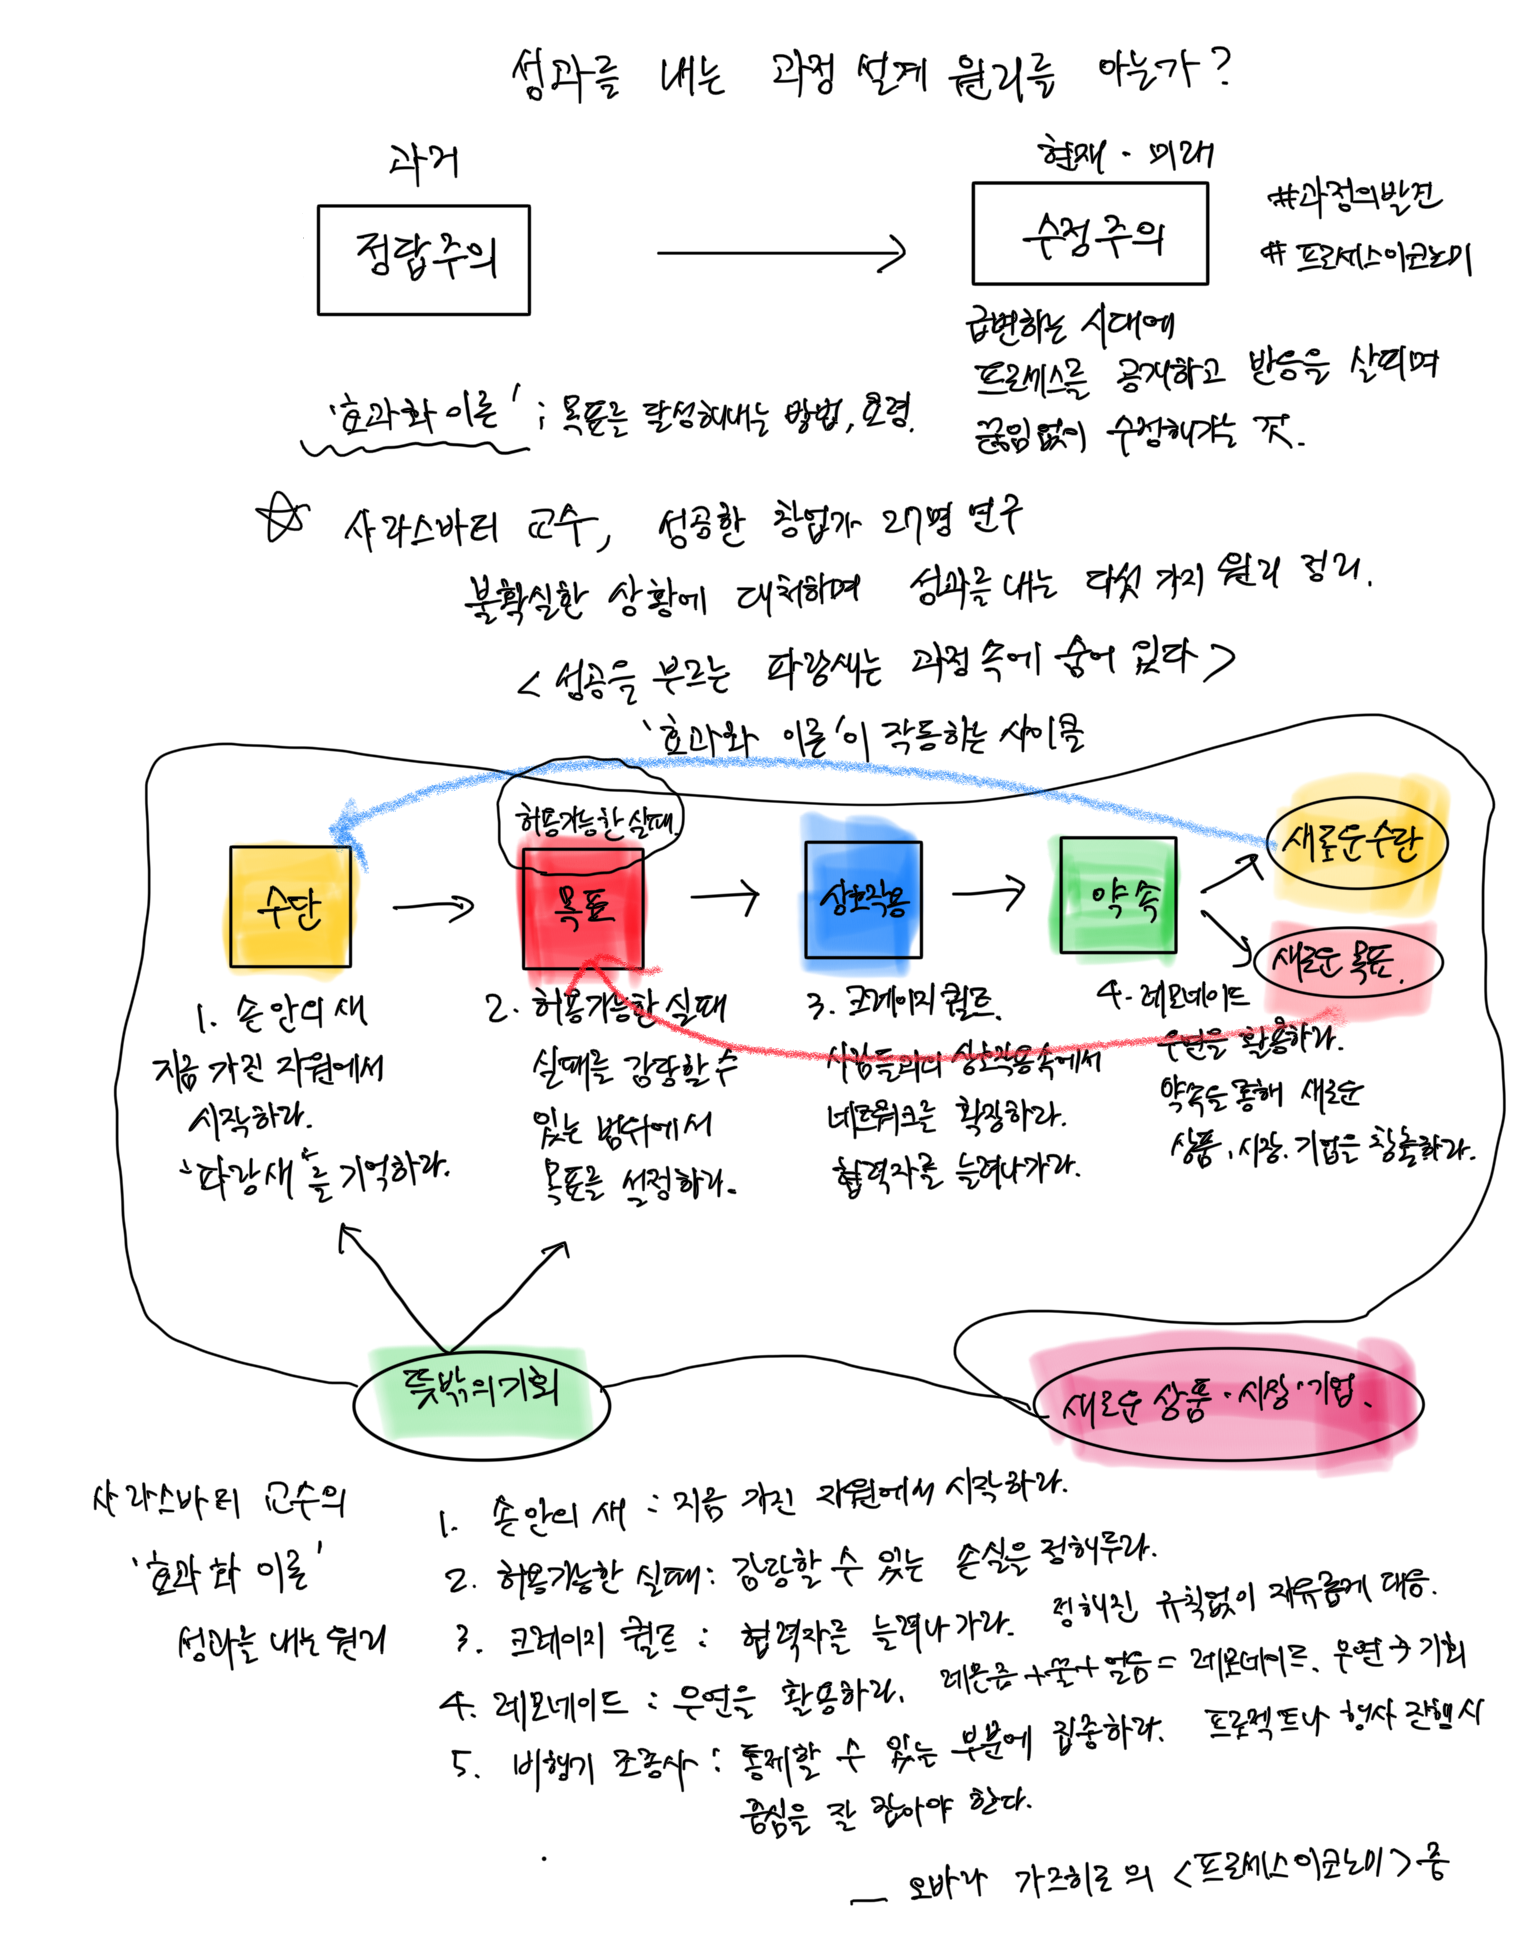 성과를 내는 과정 설계 원리를 아는가?
과거
현재·미래
정답주의
수정주의
#과정의발견
#프로세스이코노미
급변하는 시대에
프로세스를 공개하고 반응을 살피며
끊임없이 수정해가는 것.
'효과화 이론' ; 목표를 달성해내는 방법, 요령.
☆ 사라스바티 교수, 성공한 창업가 27명 연구
불확실한 상황에 대처하며 성과를 내는 다섯 가지 원리 정리.
<성공을 부르는 파랑새는 과정 속에 숨어 있다>
'효과화 이론'이 작동하는 사이클
허용가능한 실패.
수단
목표
상호작용
약속
새로운 수단
새로운 목표.
1. 손 안의 새
지금 가진 자원에서
시작하라.
'파랑새'를 기억하라.
2. 허용가능한 실패
실패를 감당할 수
있는 범위에서
목표를 설정하라.
3. 크레이지 퀼트.
사람들과의 상호작용속에서
네트워크를 확장하라.
협력자를 늘려나가라.
4. 레모네이드
우연을 활용하라.
약속을 통해 새로운
상품, 시장, 기업을 창출하라.
뜻밖의 기회
새로운 상품·시장·기업.
사라스바티 교수의
'효과화 이론'
성과를 내는 원리
1. 손 안의 새 : 지금 가진 자원에서 시작하라.
2. 허용가능한 실패 : 감당할 수 있는 손실을 정해두라.
3. 크레이지 퀼트 : 협력자를 늘려나가라. 정해진 규칙없이 자유롭게 대응.
4. 레모네이드 : 우연을 활용하라. 레몬즙+꿀+얼음= 레모네이드. 우연→기회
5. 비행기 조종사 : 통제할 수 있는 부분에 집중하라. 프로젝트나 행사 진행시
중심을 잘 잡아야 한다.
— 오바라 가즈히로의 <프로세스이코노미> 중